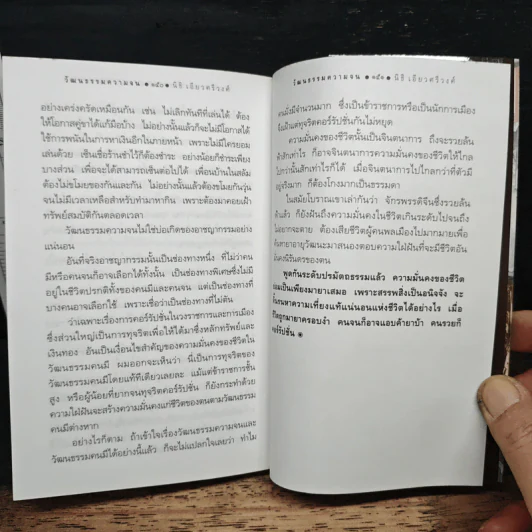 วัฒนธรรมความจน • ๑๕๐ • นิธิ เอียวศรีวงศ์
อย่างเคร่งครัดเหมือนกัน เช่น ไม่เลิกทันทีที่เล่นได้ ต้อง
ให้โอกาสคู่ขาได้แก้มือบ้าง ไม่อย่างนั้นแล้วก็จะไม่มีโอกาสได้
ใช้การพนันในการหาเงินอีกในภายหน้า เพราะไม่มีใครยอม
เล่นด้วย เซ็นเชื่อร้านชำไว้ก็ต้องชำระ อย่างน้อยก็ชำระเพียง
บางส่วน เพื่อจะได้สามารถเซ็นต่อไปได้ เพื่อนบ้านในสลัม
ต้องไม่ขโมยของกันและกัน ไม่อย่างนั้นแล้วต้องขโมยกันวุ่น
จนไม่มีเวลาเหลือสำหรับทำมาหากิน เพราะต้องมาคอยเฝ้า
ทรัพย์สมบัติกันตลอดเวลา
วัฒนธรรมความจนไม่ใช่บ่อเกิดของอาชญากรรมอย่าง
แน่นอน
อันที่จริงอาชญากรรมนั้นเป็นช่องทางหนึ่ง ที่ไม่ว่าคน
มีหรือคนจนก็อาจเลือกได้ทั้งนั้น เป็นช่องทางพิเศษซึ่งไม่มี
อยู่ในชีวิตปรกติทั้งของคนมีและคนจน แต่เป็นช่องทางที่
บางคนอาจเลือกใช้ เพราะเชื่อว่าเป็นช่องทางที่ไม่ตัน
ว่าเฉพาะเรื่องการคอร์รัปชั่นในวงราชการและการเมือง
ซึ่งส่วนใหญ่เป็นการทุจริตเพื่อให้ได้มาซึ่งหลักทรัพย์และ
เงินทอง อันเป็นเงื่อนไขสำคัญของความมั่นคงของชีวิตใน
วัฒนธรรมคนมี ผมออกจะเห็นว่า นี่เป็นการทุจริตของ
วัฒนธรรมคนมีโดยแท้ทีเดียวเลยละ แม้แต่ข้าราชการชั้น
สูง หรือผู้น้อยที่ยากจนทุจริตคอร์รัปชั่น ก็ยังกระทำด้วย
ความใฝ่ฝันจะสร้างความมั่นคงแก่ชีวิตของตนตามวัฒนธรรม
คนมีต่างหาก
อย่างไรก็ตาม ถ้าเข้าใจเรื่องวัฒนธรรมความจนและ
วัฒนธรรมคนมีได้อย่างนี้แล้ว ก็จะไม่แปลกใจเลยว่า ทำไม
วัฒนธรรมความจน • ๑๕๑ • นิธิ เอียวศรีวงศ์
คนมั่งมีจำนวนมาก ซึ่งเป็นข้าราชการหรือเป็นนักการเมือง
จึงเฝ้าแต่ทุจริตคอร์รัปชั่นกันไม่หยุด
ความมั่นคงของชีวิตนั้นเป็นจินตนาการ ถึงจะรวยล้น
ฟ้าสักเท่าไร ก็อาจจินตนาการความมั่นคงของชีวิตให้ไกล
ไปกว่านั้นสักเท่าไรก็ได้ เมื่อจินตนาการไปไกลกว่าที่ตัวมี
อยู่จริงมาก ก็ต้องโกงมากเป็นธรรมดา
ในสมัยโบราณเขาเล่ากันว่า จักรพรรดิจีนซึ่งรวยล้น
ฟ้าแล้ว ก็ยังฝันถึงความมั่นคงในชีวิตเกินระดับไปจนถึง
ไม่อยากจะตาย ต้องเสียชีวิตผู้คนพลเมืองไปมากมายเพื่อ
ค้นหายาอายุวัฒนะมาสนองตอบความใฝ่ฝันที่จะมีชีวิตอัน
มั่นคงนิรันดรของตน
พูดกันระดับปรมัตถธรรมแล้ว ความมั่นคงของชีวิต
ย่อมเป็นเพียงมายาเสมอ เพราะสรรพสิ่งเป็นอนิจจัง จะ
ค้นหาความเที่ยงแท้แน่นอนแห่งชีวิตได้อย่างไร เมื่อ
ชีวิตถูกมายาครอบงำ คนจนก็อาจแอบค้ายาบ้า คนรวยก็
คอร์รัปชั่น